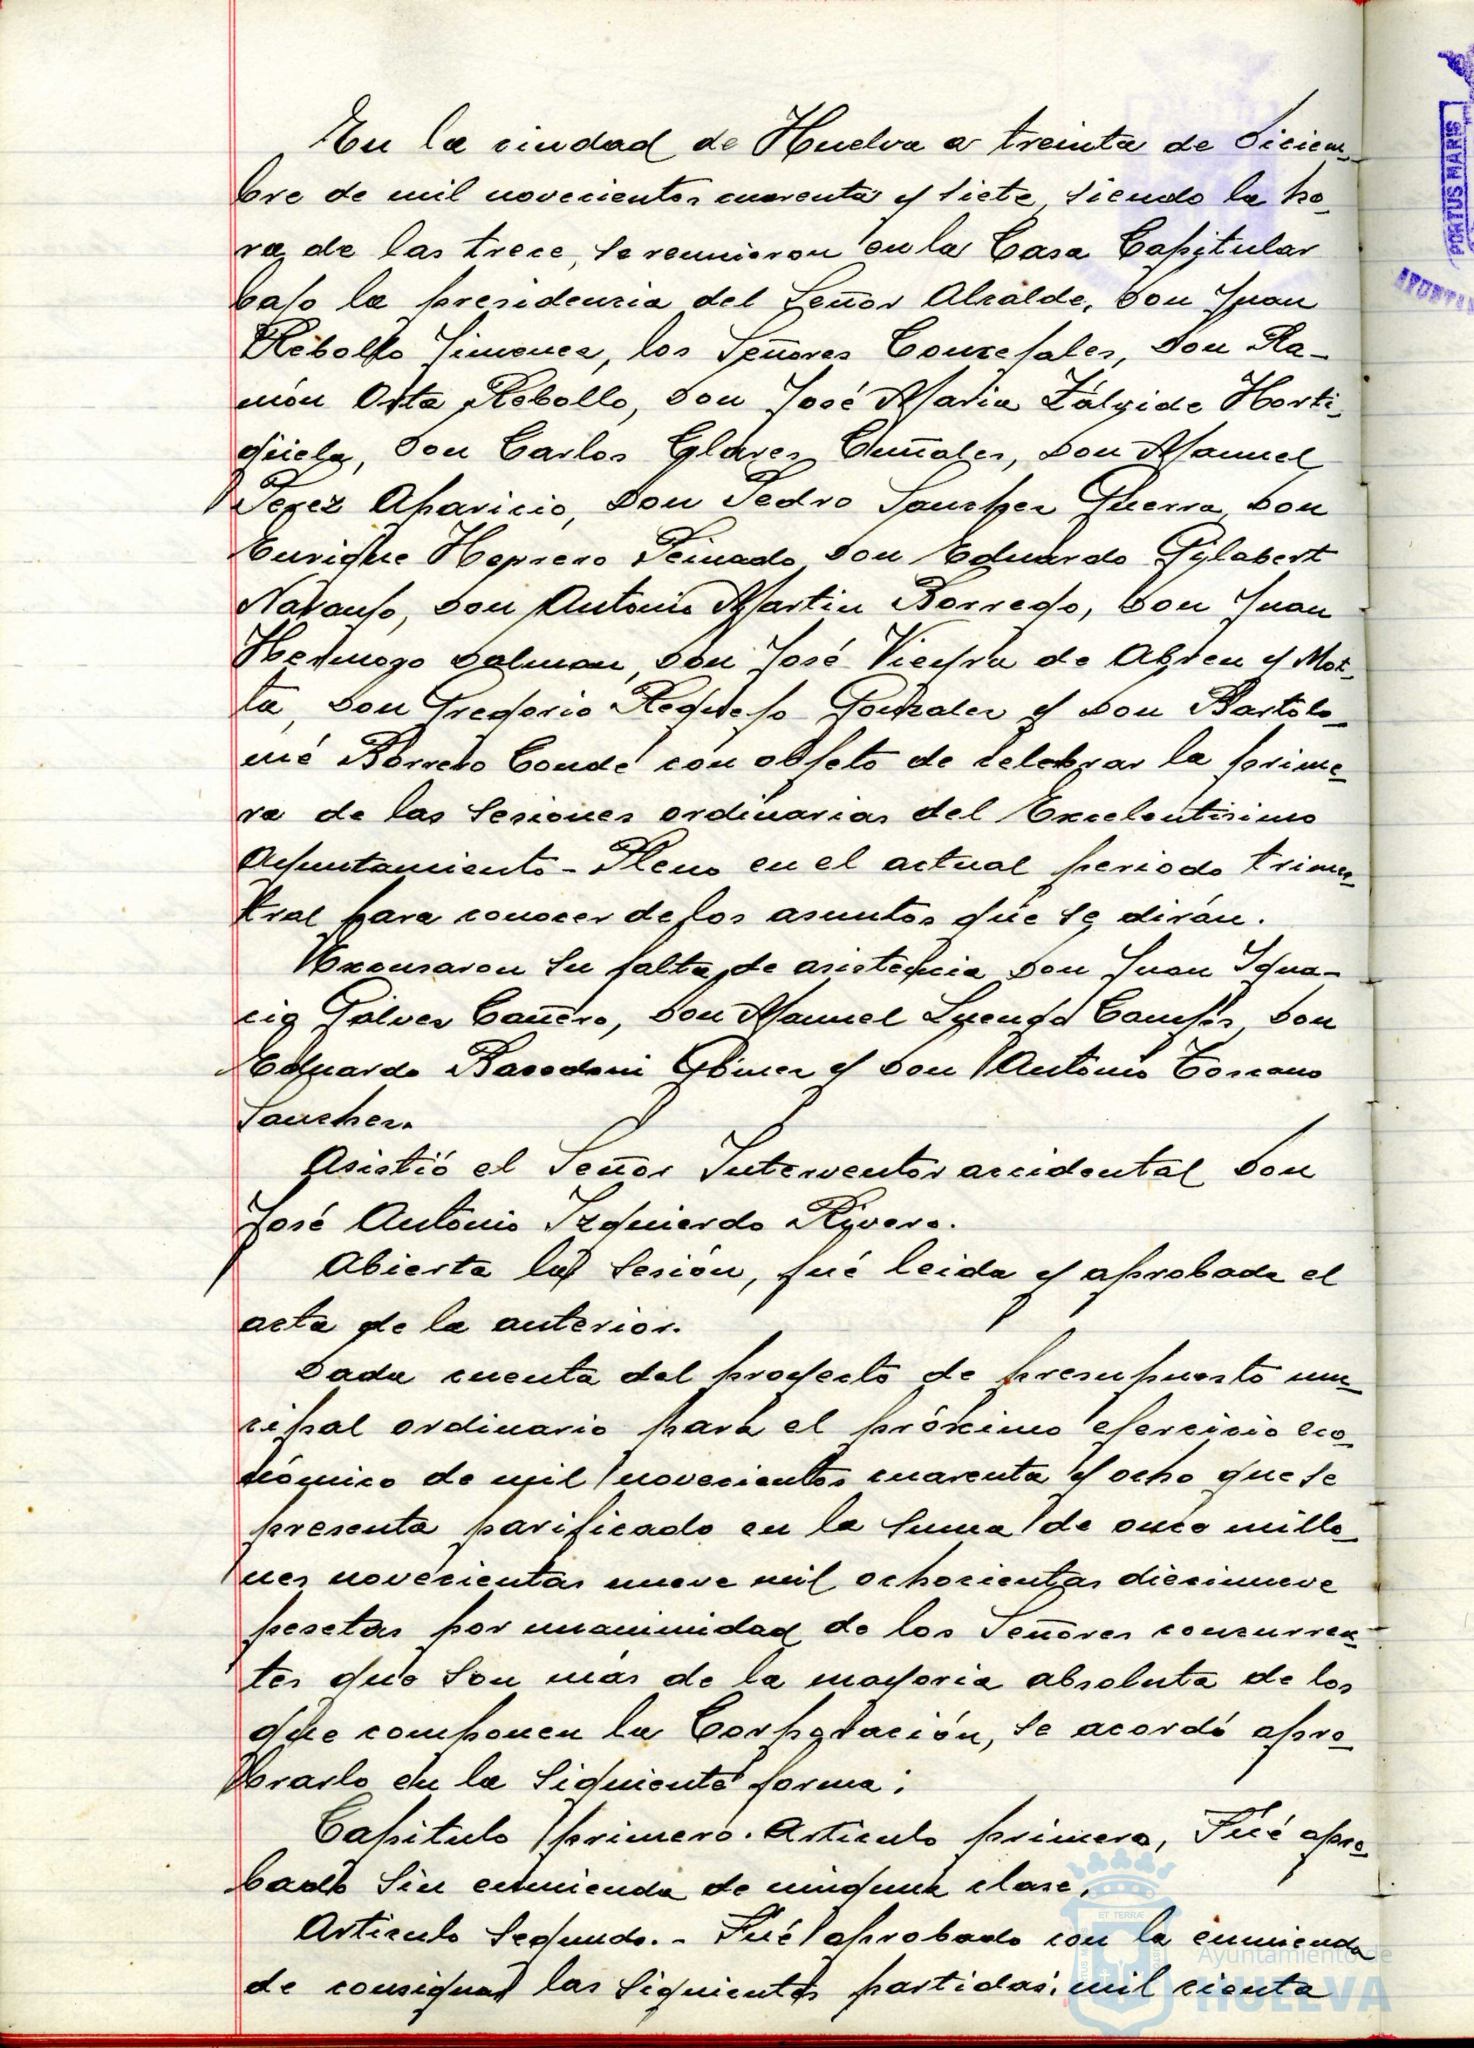 En la ciudad de Huelva a treinta de Diciem-
bre de mil novecientos cuarenta y siete, siendo la ho-
ra de las trece, se reunieron en la Casa Capitular
bajo la presidencia del Señor Alcalde, Don Juan
Rebollo Jimenez, los Señores Concejales, Don Ra-
món Orta Rebollo, Don José Maria Zálvide Horti-
güela, Don Carlos Glares Cuñales, Don Manuel
Perez Aparicio, Don Pedro Sanchez Guerra, Don
Enrique Herrero Peinado, Don Eduardo Gilabert
Naranjo, Don Antonio Martin Borrego, Don Juan
Hermozo Dolman, Don José Vieyra de Abreu y Mot-
ta, Don Gregorio Requejo Gonzalez y Don Bartolo-
mé Borrero Conde con objeto de celebrar la prime-
ra de las sesiones ordinarias del Excelentisimo
Ayuntamiento-Pleno en el actual periodo trimes-
tral para conocer de los asuntos que se dirán.
Excusaron su falta de asistencia Don Juan Igna-
cio Gálvez Cañero, Don Manuel Luengo Campos, Don
Eduardo Bacedoni Gómez y Don Antonio Toscano
Sanchez.
Asistió el Señor Interventor accidental Don
José Antonio Izquierdo Rivero.
Abierta la sesión, fué leida y aprobada el
acta de la anterior.
Dada cuenta del proyecto de presupuesto mu-
cipal ordinario para el próximo ejercicio eco-
nómico de mil novecientos cuarenta y ocho que se
presenta parificado en la suma de once millo-
nes novecientas nueve mil ochocientas diecinueve
pesetas por unanimidad de los Señores concurren-
tes que son más de la mayoria absoluta de los
que componen la Corporación, se acordó apro-
barlo en la siguiente forma:
Capitulo primero. Articulo primero, Fué apro-
bado sin enmienda de ninguna clase.
Articulo segundo.- Fué aprobado con la enmienda
de consignar las siguientes partidas: mil cienta
PORTUS MARIS
ET TERRÆ
Ayuntamiento de
HUELVA